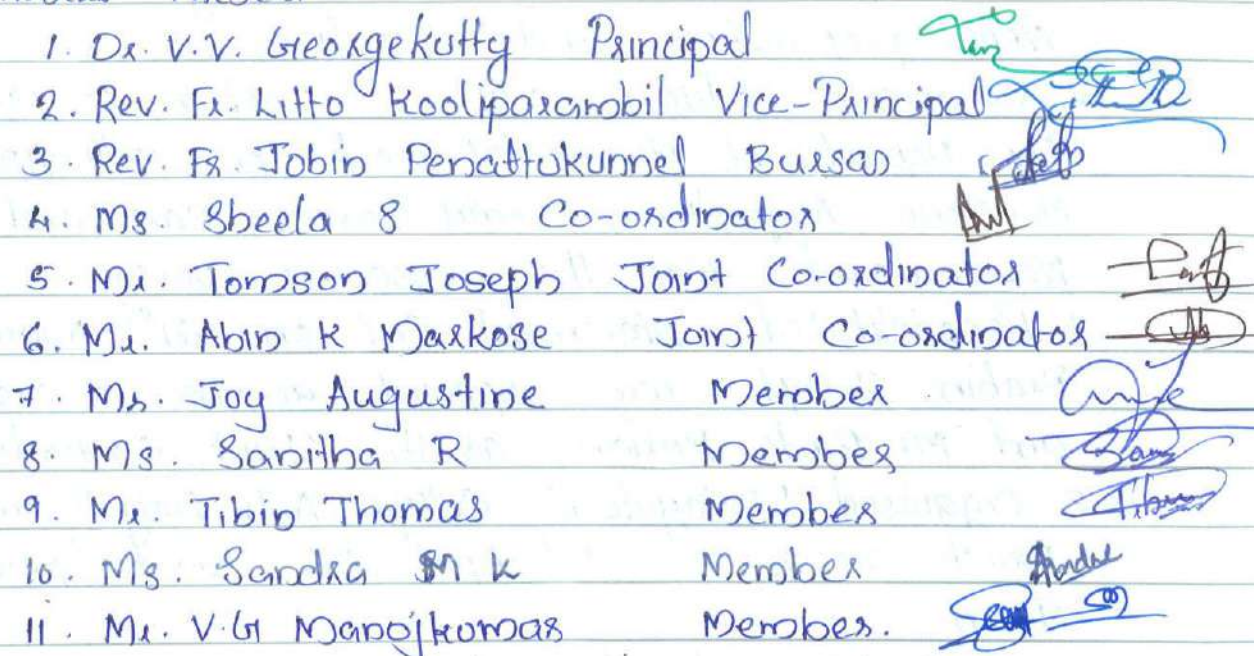 1. Dr. V.V. Georgekutty Principal
2. Rev. Fr. Litto Kooliparambil Vice-Principal
3. Rev. Fr. Jobin Penattukunnel Bursar
4. Ms. Sheela S Co-ordinator
5. Mr. Tomson Joseph Joint Co-ordinator
6. Mr. Abin K Markose Joint Co-ordinator
7. Mr. Joy Augustine Member
8. Ms. Sanitha R Member
9. Mr. Tibin Thomas Member
10. Ms. Sandra M K Member
11. Mr. V.G Manojkumar Member.